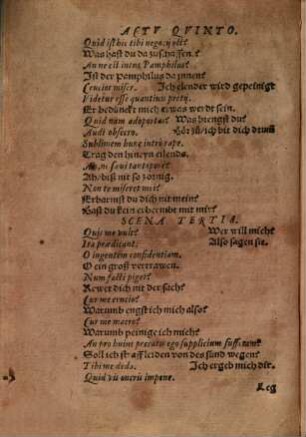 ACTV QVINTO.
Quid ist hic tibi negocij est?
Was hast du da zuschaffen?
An ne est intus Pamphilus?
Ist der Pamphilus da innen?
Crucior miser. Ich elender wird gepeinigt
Videtur esse quantiuis pretij.
Er bedunckt mich etwas werdt sein.
Quid nam adportas? Was bringst du?
Audi obsecro. Hör zu/ich bit dich drum
Sublimem hunc intro rape.
Trag den hinein eilends.
saeui tantopere?
Ah/biß nit so zornig.
Non te miseret mei?
Erbarmst du dich nit mein?
Hast du kein erbermbt mit mir?
SCENA TERTIA.
Quis me vult? Wer will mich?
Ita praedicant. Also sagen sie.
O ingentem confidentiam.
O ein groß vertrawen.
Num facti piget?
Rewet dich der sach?
Cur me excrucio?
Warumb engst ich mich also?
Cur me macero?
Warumb peinige ich mich?
An pro huius peccatis ego supplicium suffera?
Soll ich straff leiden von des sünd wegen?
Tibi me dedo. Ich ergeb mich dir.
Quid vis oneris impone.
Leg